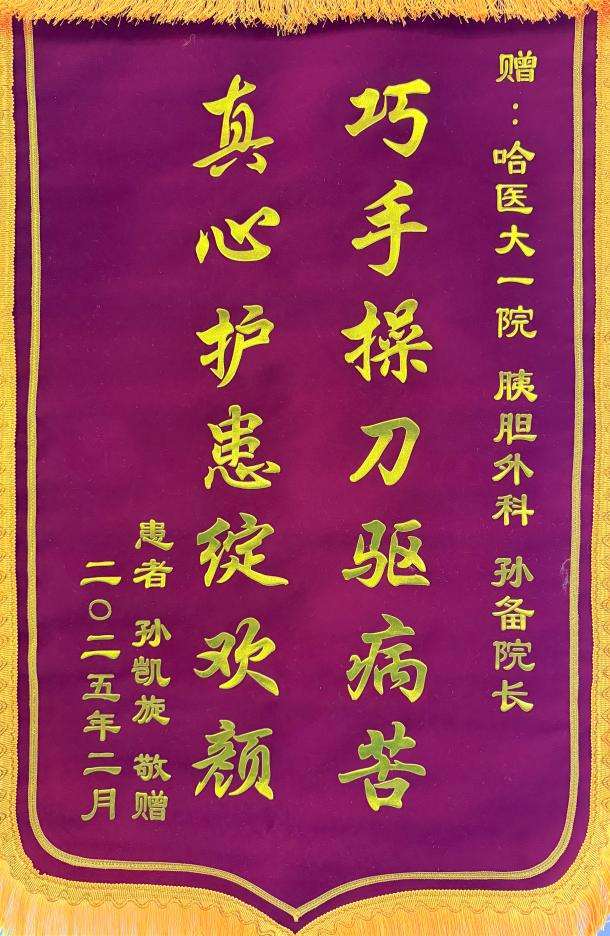 赠：哈医大一院 胰胆外科 孙备院长
巧手操刀驱病苦
真心护患绽欢颜
患者 孙凯旋 敬赠
二〇二五年二月